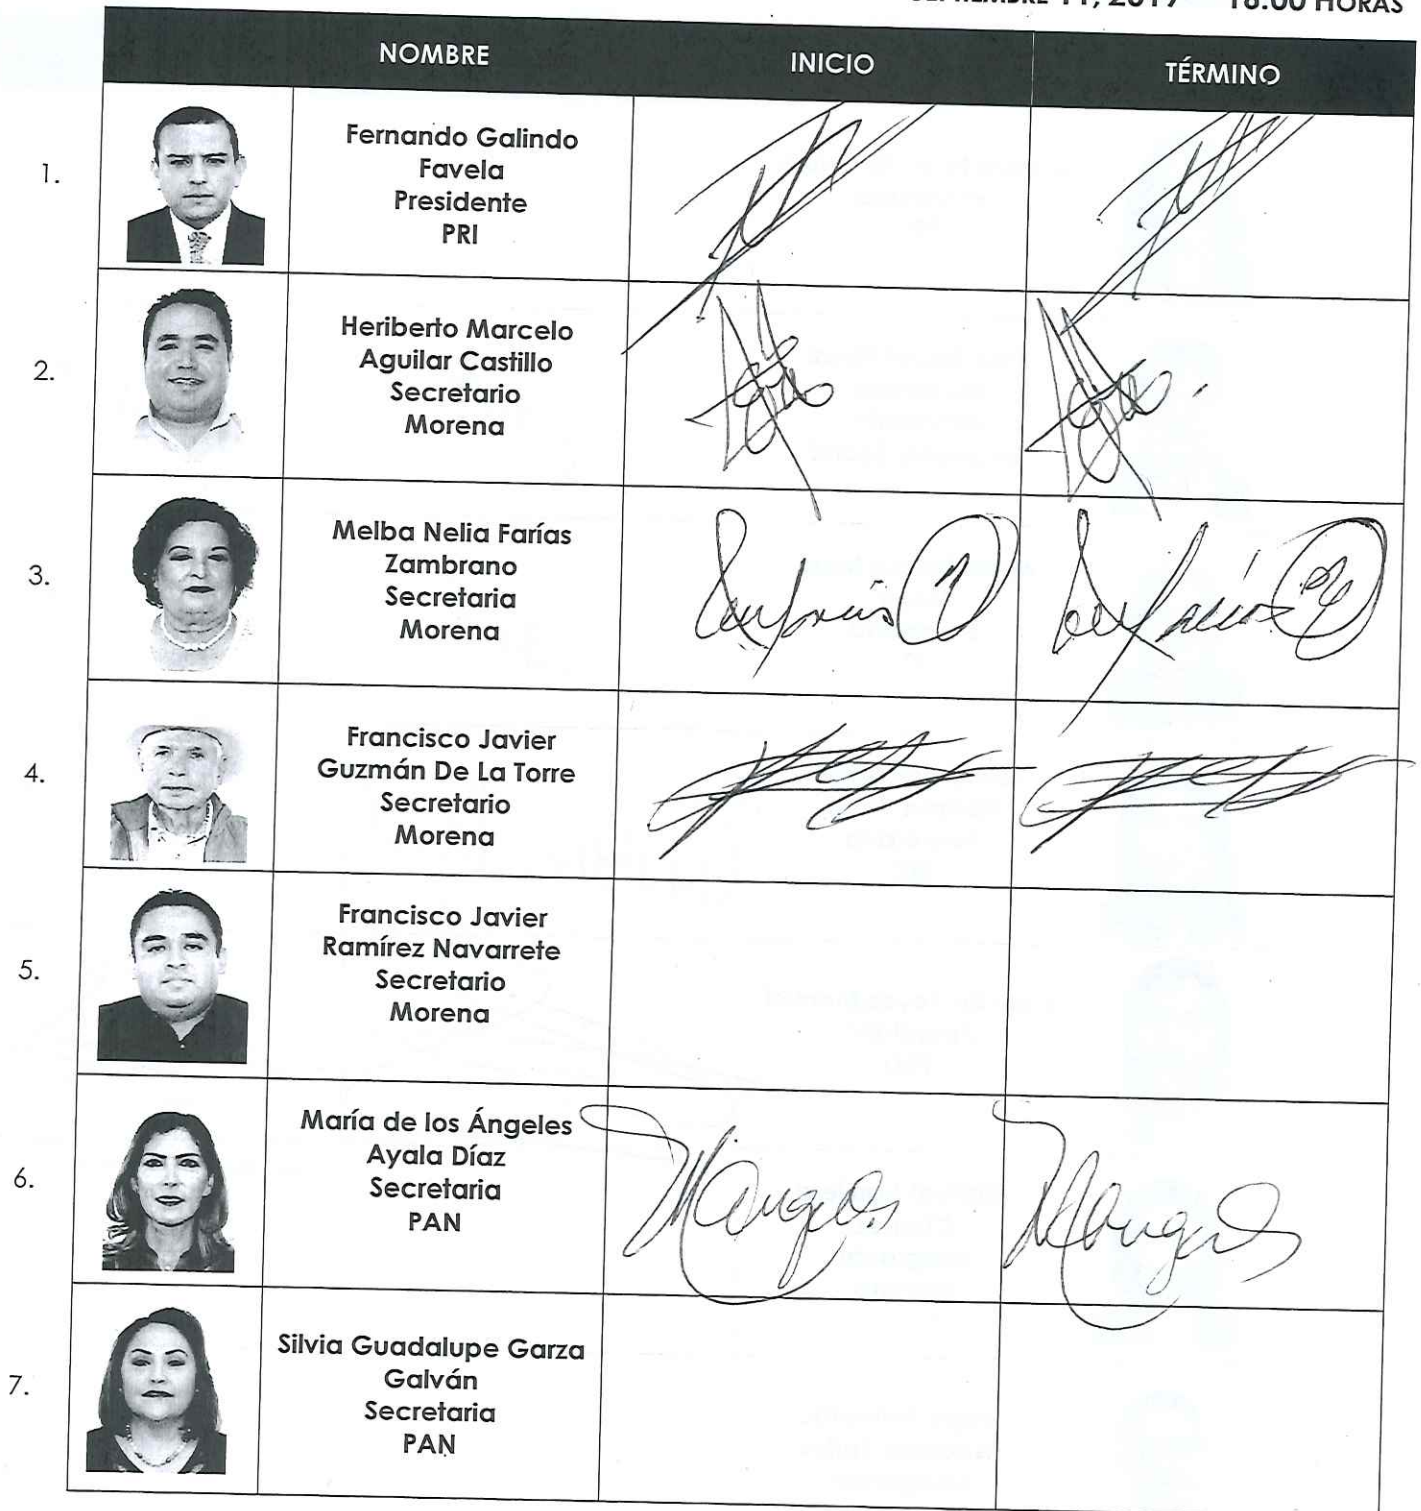 SEPTIEMBRE 11, 2019 18:00 HORAS
NOMBRE INICIO TÉRMINO
1.
Fernando Galindo
Favela
Presidente
PRI
2.
Heriberto Marcelo
Aguilar Castillo
Secretario
Morena
3.
Melba Nelia Farías
Zambrano
Secretaria
Morena
4.
Francisco Javier
Guzmán De La Torre
Secretario
Morena
5.
Francisco Javier
Ramírez Navarrete
Secretario
Morena
6.
María de los Ángeles
Ayala Díaz
Secretaria
PAN
7.
Silvia Guadalupe Garza
Galván
Secretaria
PAN